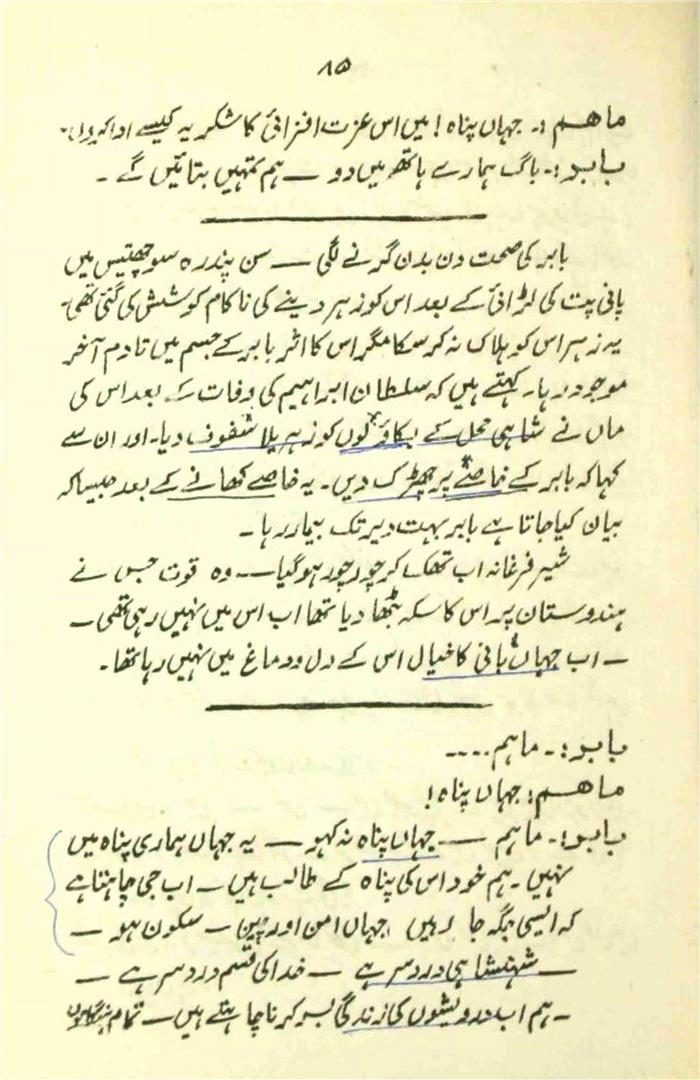 ۸۵
ماھم :۔ جہاں پناہ! میں اس عزت افزائی کا شکریہ کیسے ادا کروں۔
بابر :۔ باگ ہمارے ہاتھ میں دو — ہم تمہیں بتائیں گے ۔
بابر کی صحت دن بدن گرنے لگی — سن پندرہ سو چھتیس میں
پانی پت کی لڑائی کے بعد اس کو زہر دینے کی ناکام کوشش کی گئی تھی۔
یہ زہر اس کو ہلاک نہ کرسکا مگر اس کا اثر بابر کے جسم میں تادم آخر
موجود رہا۔ کہتے ہیں کہ سلطان ابراہیم کی وفات کے بعد اس کی
ماں نے شاہی محل کے بکاولوں کو زہریلا سفوف دیا۔ اور ان سے
کہا کہ بابر کے خاصے پر چھڑک دیں۔ یہ خاصے کھانے کے بعد جیسا کہ
بیان کیا جاتا ہے بابر بہت دیر تک بیمار رہا ۔
شیر فرغانہ اب تھک کر چور چور ہوگیا — وہ قوت جس نے
ہندوستان پر اس کا سکہ بٹھا دیا تھا اب اس میں نہیں رہی تھی —
— اب جہاں بانی کا خیال اس کے دل و دماغ میں نہیں رہا تھا۔
بابر :۔ ماہم ....
ماھم : جہاں پناہ !
بابر :۔ ماہم — جہاں پناہ نہ کہو — یہ جہاں ہماری پناہ میں
نہیں ۔ ہم خود اس کی پناہ کے طالب ہیں — اب جی چاہتا ہے
کہ ایسی جگہ جا رہیں جہاں امن اور چین — سکون ہو —
— شہنشاہی درد سر ہے — خدا کی قسم درد سر ہے —
— ہم اب درویشوں کی زندگی بسر کرنا چاہتے ہیں — تمام ہنگاموں